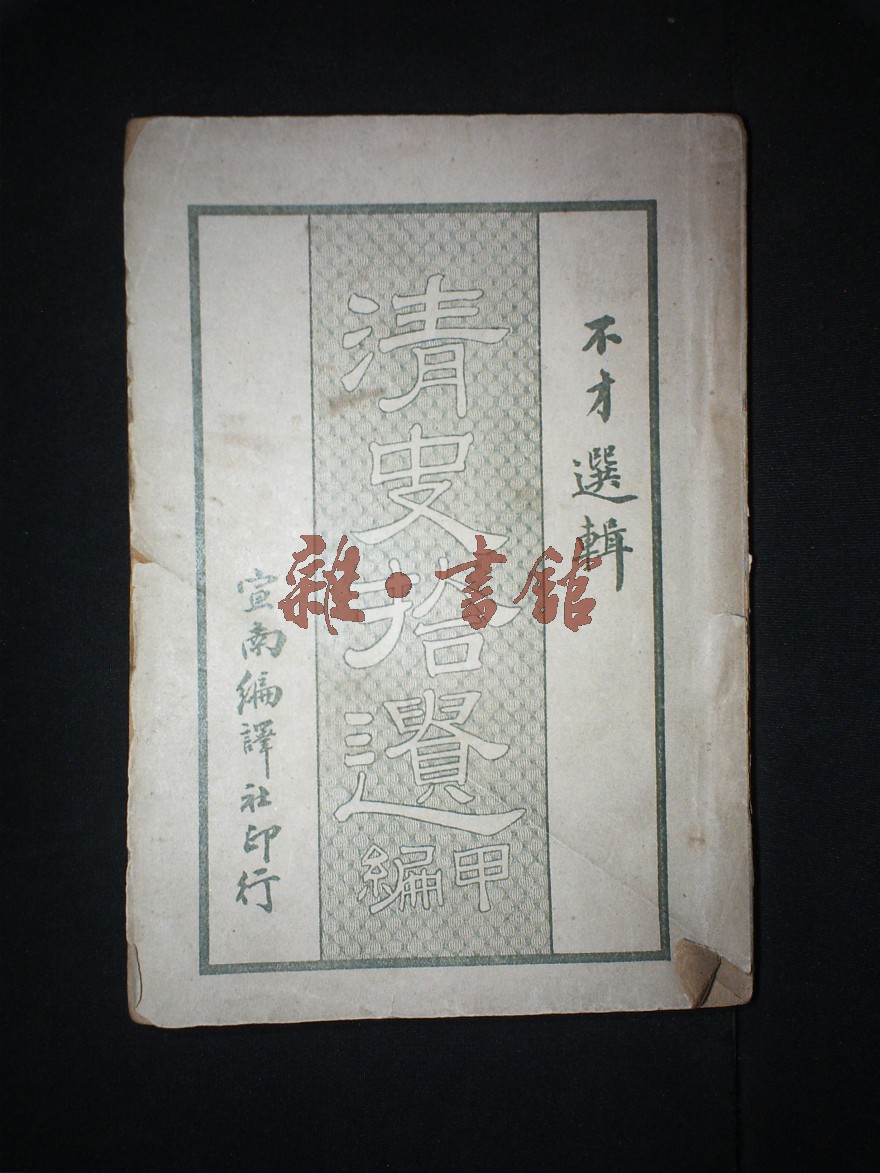 不才選輯
清史拾遺
甲編
宣南編譯社印行
雜·書館